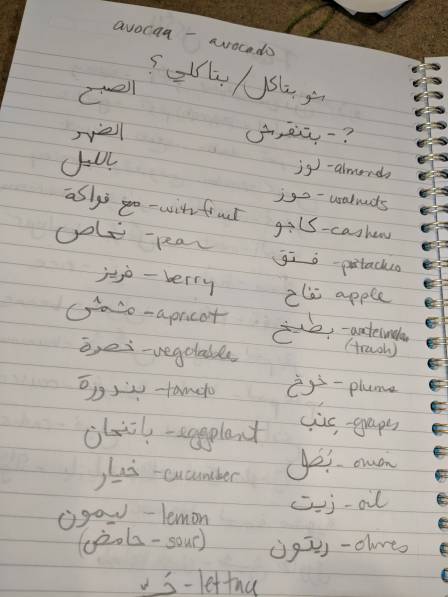 avocaa - avocado
شو بتاكل / بتاكلي ؟
الصبح
الضهر
بتنقرش - ?
بالليل
لوز - almonds
مع فواكة - with fruit
جوز - walnuts
نجاص - pear
كاجو - cashew
فستق - pistachio
فريز - berry
تفاح apple
مشمش - apricot
بطيخ - watermelon
(trash)
خضرة - vegetables
خوخ - plums
بندورة - tomato
عنب - grapes
باتنجان - eggplant
بَصَل - onion
خيار - cucumber
زيت - oil
ليمون - lemon
(حامض - sour)
زيتون - olives
- lettuce